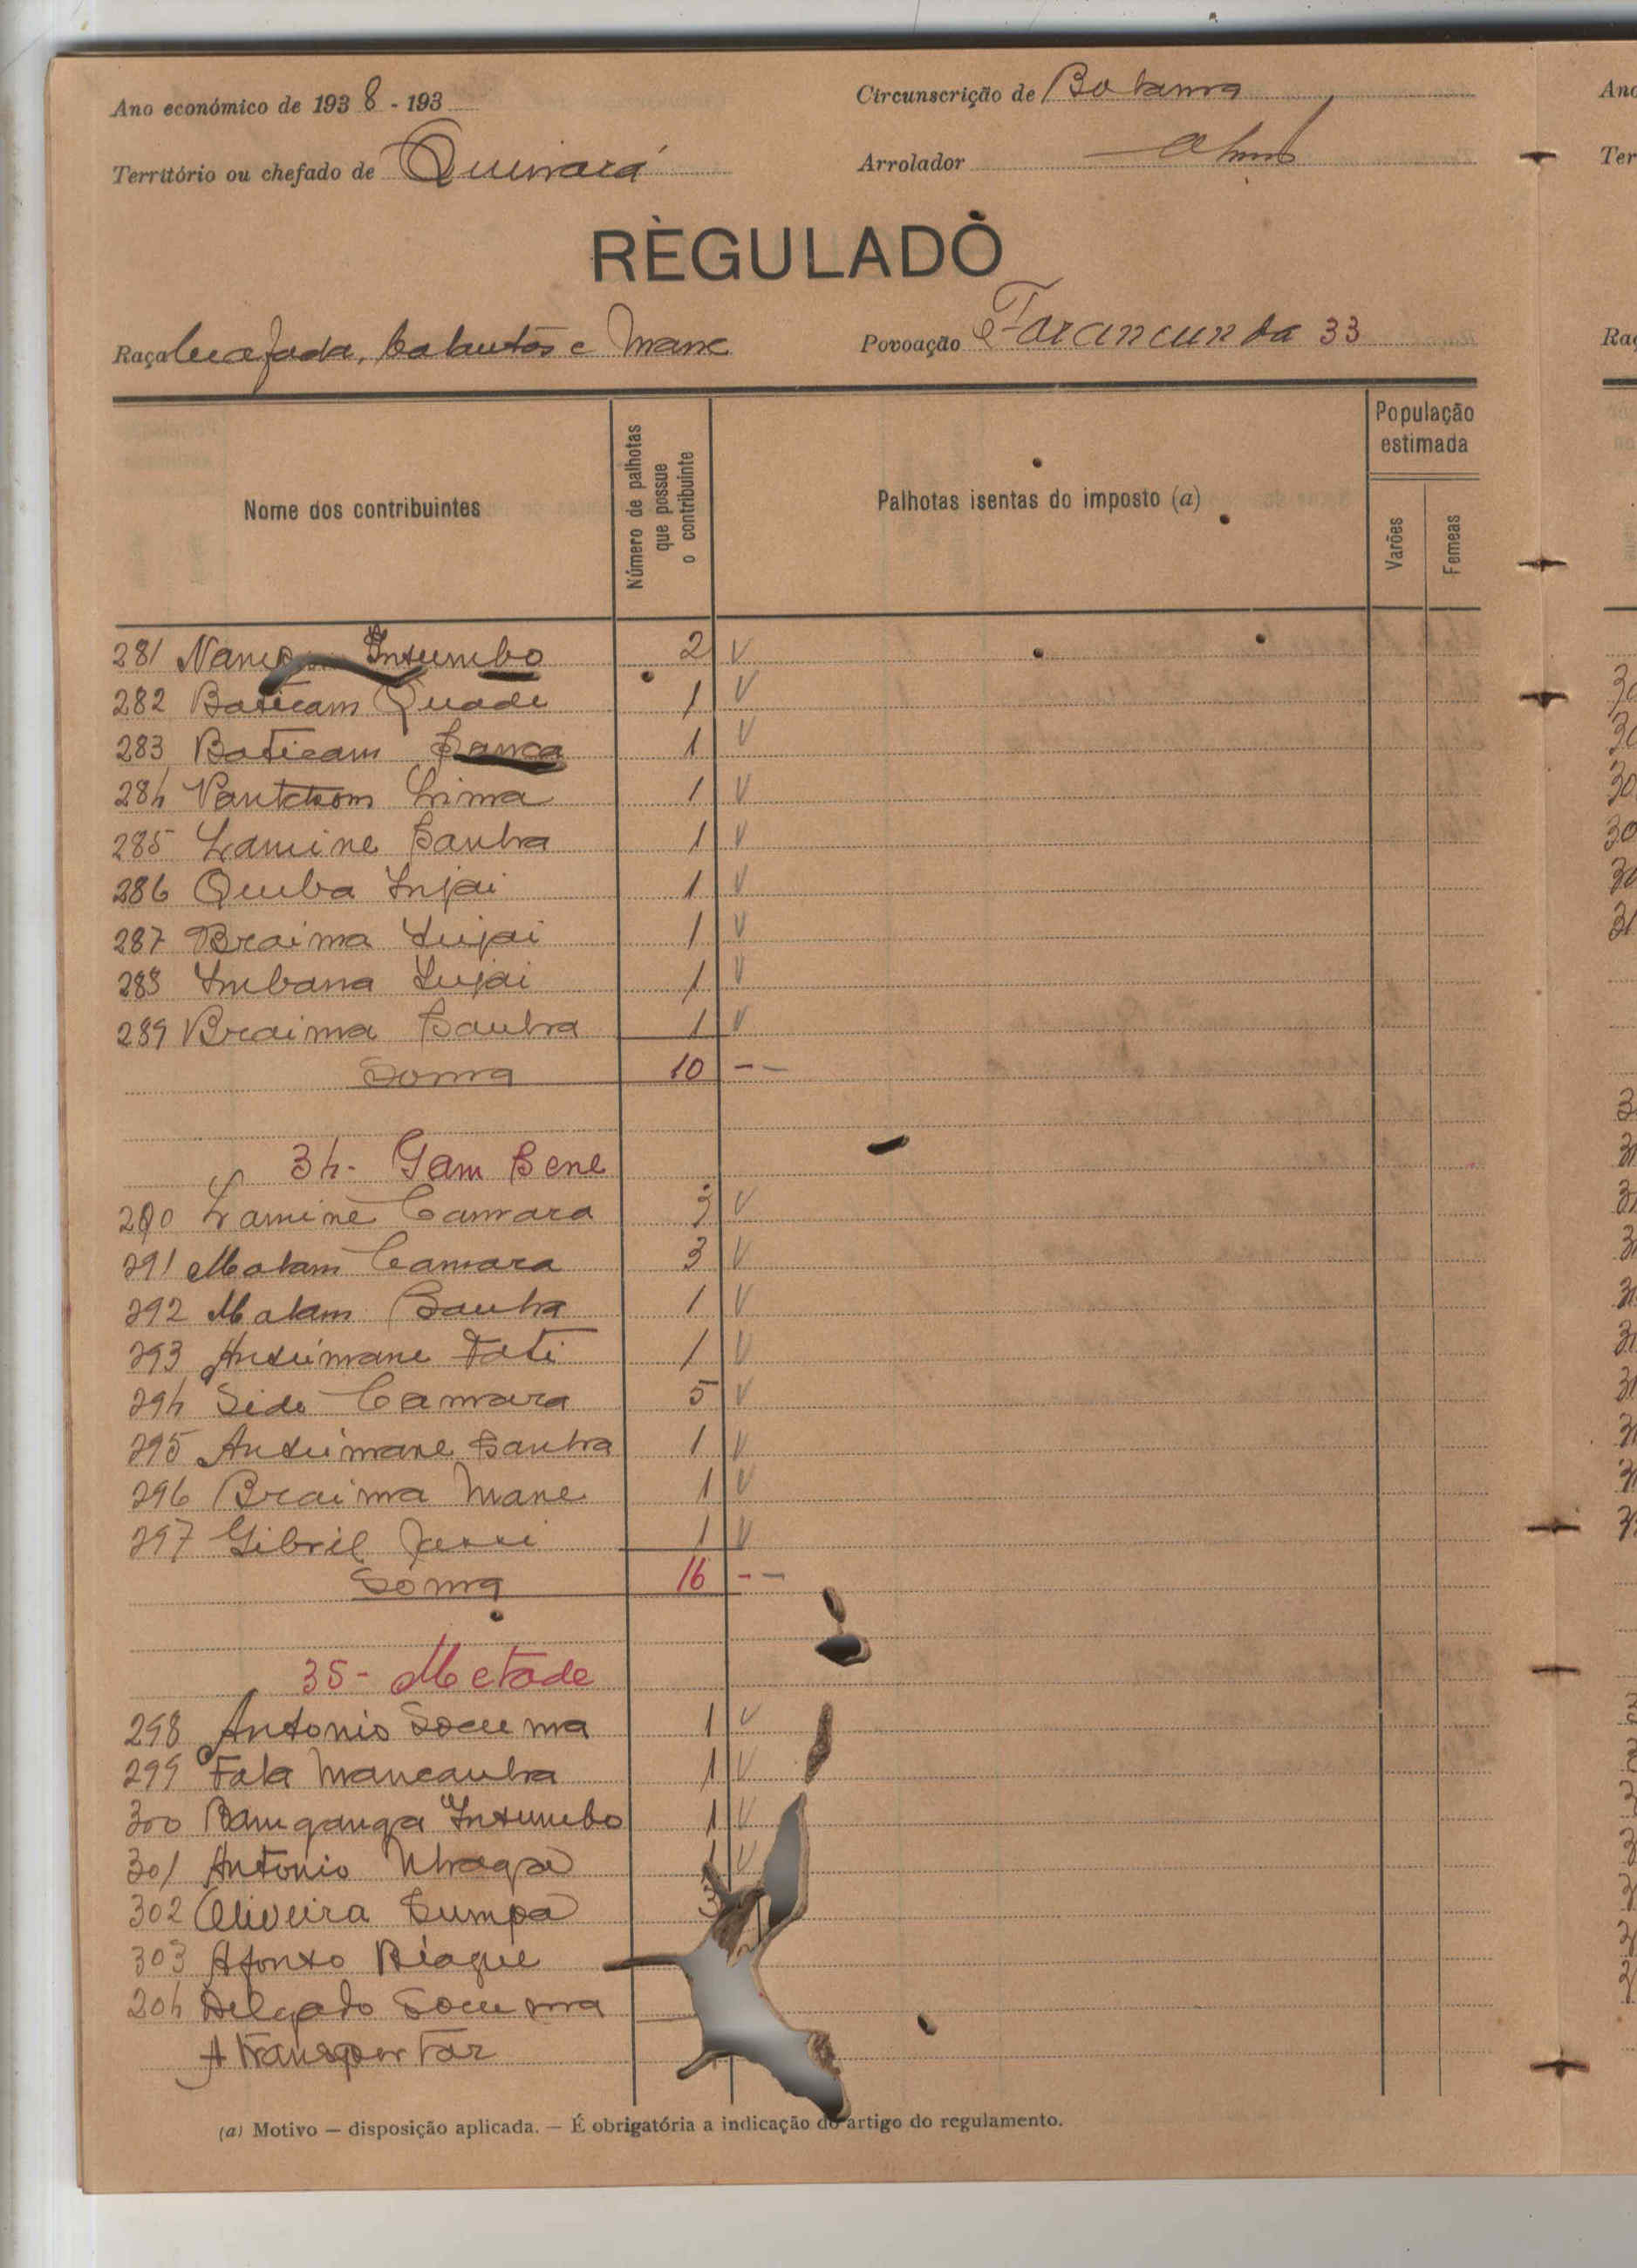 Ano económico de 1938 - 193
Circunscrição de Bolama
Território ou chefado de Quinará
Arrolador
REGULADO
Raça Beafada, balantas e Mane
Povoação Farancunda 33
Nome dos contribuintes
Número de palhotas que possue o contribuinte
Palhotas isentas do imposto (a)
População estimada
Varões
Femeas
281 Intumbo 2 V
282 Baticam Quade 1 V
283 Baticam Sanca 1 V
284 Lima 1 V
285 Lamine Sanha 1 V
286 Quiba Injai 1 V
287 Braima Injai 1 V
288 Imbana Injai 1 V
289 Braima Sanha 1 V
Soma 10 - -
34 - Gam Sene
290 Lamine Camara 3 V
291 Malam Camara 3 V
292 Malam Sanha 1 V
293 Ansumane Fati 1 V
294 Side Camara 5 V
295 Ansumane Sanha 1 V
296 Braima Mane 1 V
297 Gibril 1 V
Soma 16 - -
35 - Metade
298 Antonio Socuma 1 V
299 Fala Mancanha 1 V
300 Bamganga Intumbo 1 V
301 Antonio 1 V
302 Oliveira Sumpa 3
303 Afonso Biague
204 Delgado Socuma
A transportar
(a) Motivo — disposição aplicada. — É obrigatória a indicação do artigo do regulamento.